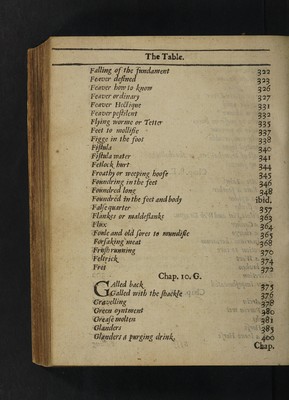 The Table.
Falling of the fundament 322
Feaver defined 323
Feaver how to know 326
Feaver ordinary 327
Feaver Hectique 331
Feaver pestilent 332
Flying worme or Tetter 335
Feet to mollifie 337
Figge in the foot 338
Fistula 340
Fistula water 341
Fetlock hurt 344
Froathy or weeping hoofe 345
Foundring in the feet 346
Foundred long 348
Foundred in the feet and body ibid.
False quarter 357
Flankes or maldeflankes 363
Flux 364
Foule and old sores to mundifie 365
Forsaking meat 368
Frush running 370
Feltrick 374
Fret 372
Chap. 10. G.
GAlled back 375
Galled with the shackle 376
Gravelling 378
Green oyntment 380
Grease molten 381
Glanders 385
Glanders a purging drink, 400
Chap.